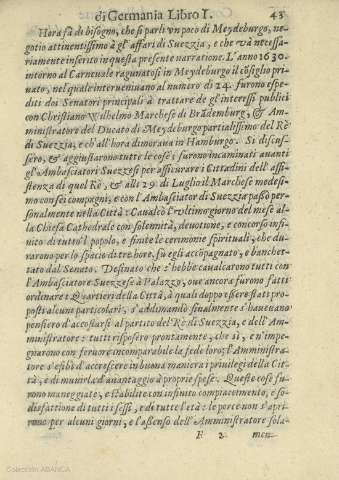 di Germania Libro I. 43
Hora fà di bisogno, che si parli vn poco di Meydeburgo, ne-
gotio attinentissimo à gl'affari di Suezzia, e che và neressa-
riamente inserito in questa presente narratione. L'anno 1630.
intorno al Carneuale ragunatosi in Meydeburgo il cõsiglio pri-
uato, nel quale interueniuano al numero di 24. furono espe-
diti doi Senatori principali à trattare de gl'interessi publici
con Christiano VVilhelmo Marchese di Brãdemburg, & Am-
ministratore del Ducato di Meydeburgo partialissimo del Rè
di Suezzia, e ch'all'hora dimoraua in Hamburgo. Si discus-
sero, & aggiustarono tutte le cose; furono incaminati auanti
gl'Ambasciatori Suezzesi per assicurare i Cittadini dell'assi-
stenza di quel Rè, & alli 29. di Luglio il Marchese medesi-
mo con sei compagni, e con l'Ambasciator di Suezzia passò per-
sonalmente nella Città: Caualcò l'vltimo giorno del mese al-
la Chiesa Cathedrale con solemnità, deuotione, e concorso infi-
nito di tutto'l popolo, e finite le cerimonie spirituali, che du-
rarono per lo spacio di tre hore, fù egli accompagnato, e banchet-
tato dal Senato. Desinato che s'hebbe caualcarono tutti con
l'Ambasciatore Suezzese à Palazzo, oue ancora furono fatti
ordinare i Quartieri della Città, à quali doppo essere stati pro-
posti alcune particolari, s'addimandò finalmente s'haueuano
pensiero d'accostarsi al partito del Rè di Suezzia, e dell'Am-
ministratore: tutti risposero prontamente, che sì, e n'impe-
gnarono con feruore incomparabile la fede loro; l'Amministra-
tore s'esibì d'accrescere in buona maniera i priuilegi della Cit-
tà, e di munirla d'auantaggio à proprie spese. Queste cose fu-
rono maneggiate, e stabilite con infinito compiacimento, e so-
disfattione di tutti i sessi, e di tutte l'età: le porte non s'apri-
rono per alcuni giorni, e l'assenso dell'Amministratore sola-
F 2 men-
Colección ABANCA